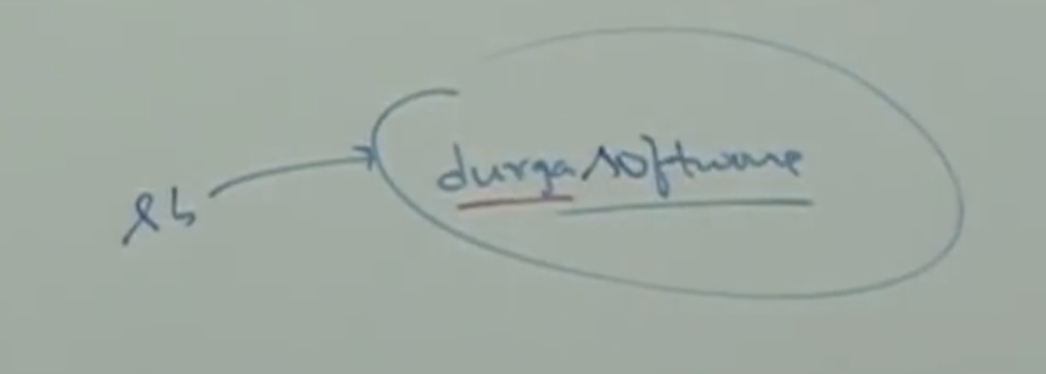 sb
durgasoftware